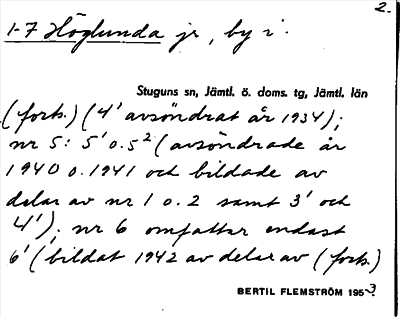 2.
1-7 Höglunda jr, by i
Stuguns sn, Jämtl. ö. doms. tg, Jämtl. län
(forts.) (4¹ avsöndrat år 1934);
nr 5: 5¹ o. 5² (avsöndrade år
1940 o. 1941 och bildade av
delar av nr 1 o. 2 samt 3¹ och
4¹); nr 6 omfattar endast
6¹ (bildat 1942 av delar av (forts.)
BERTIL FLEMSTRÖM 1953